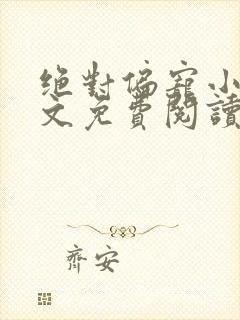 絕對偏寵小
文免費閱讀
齊安